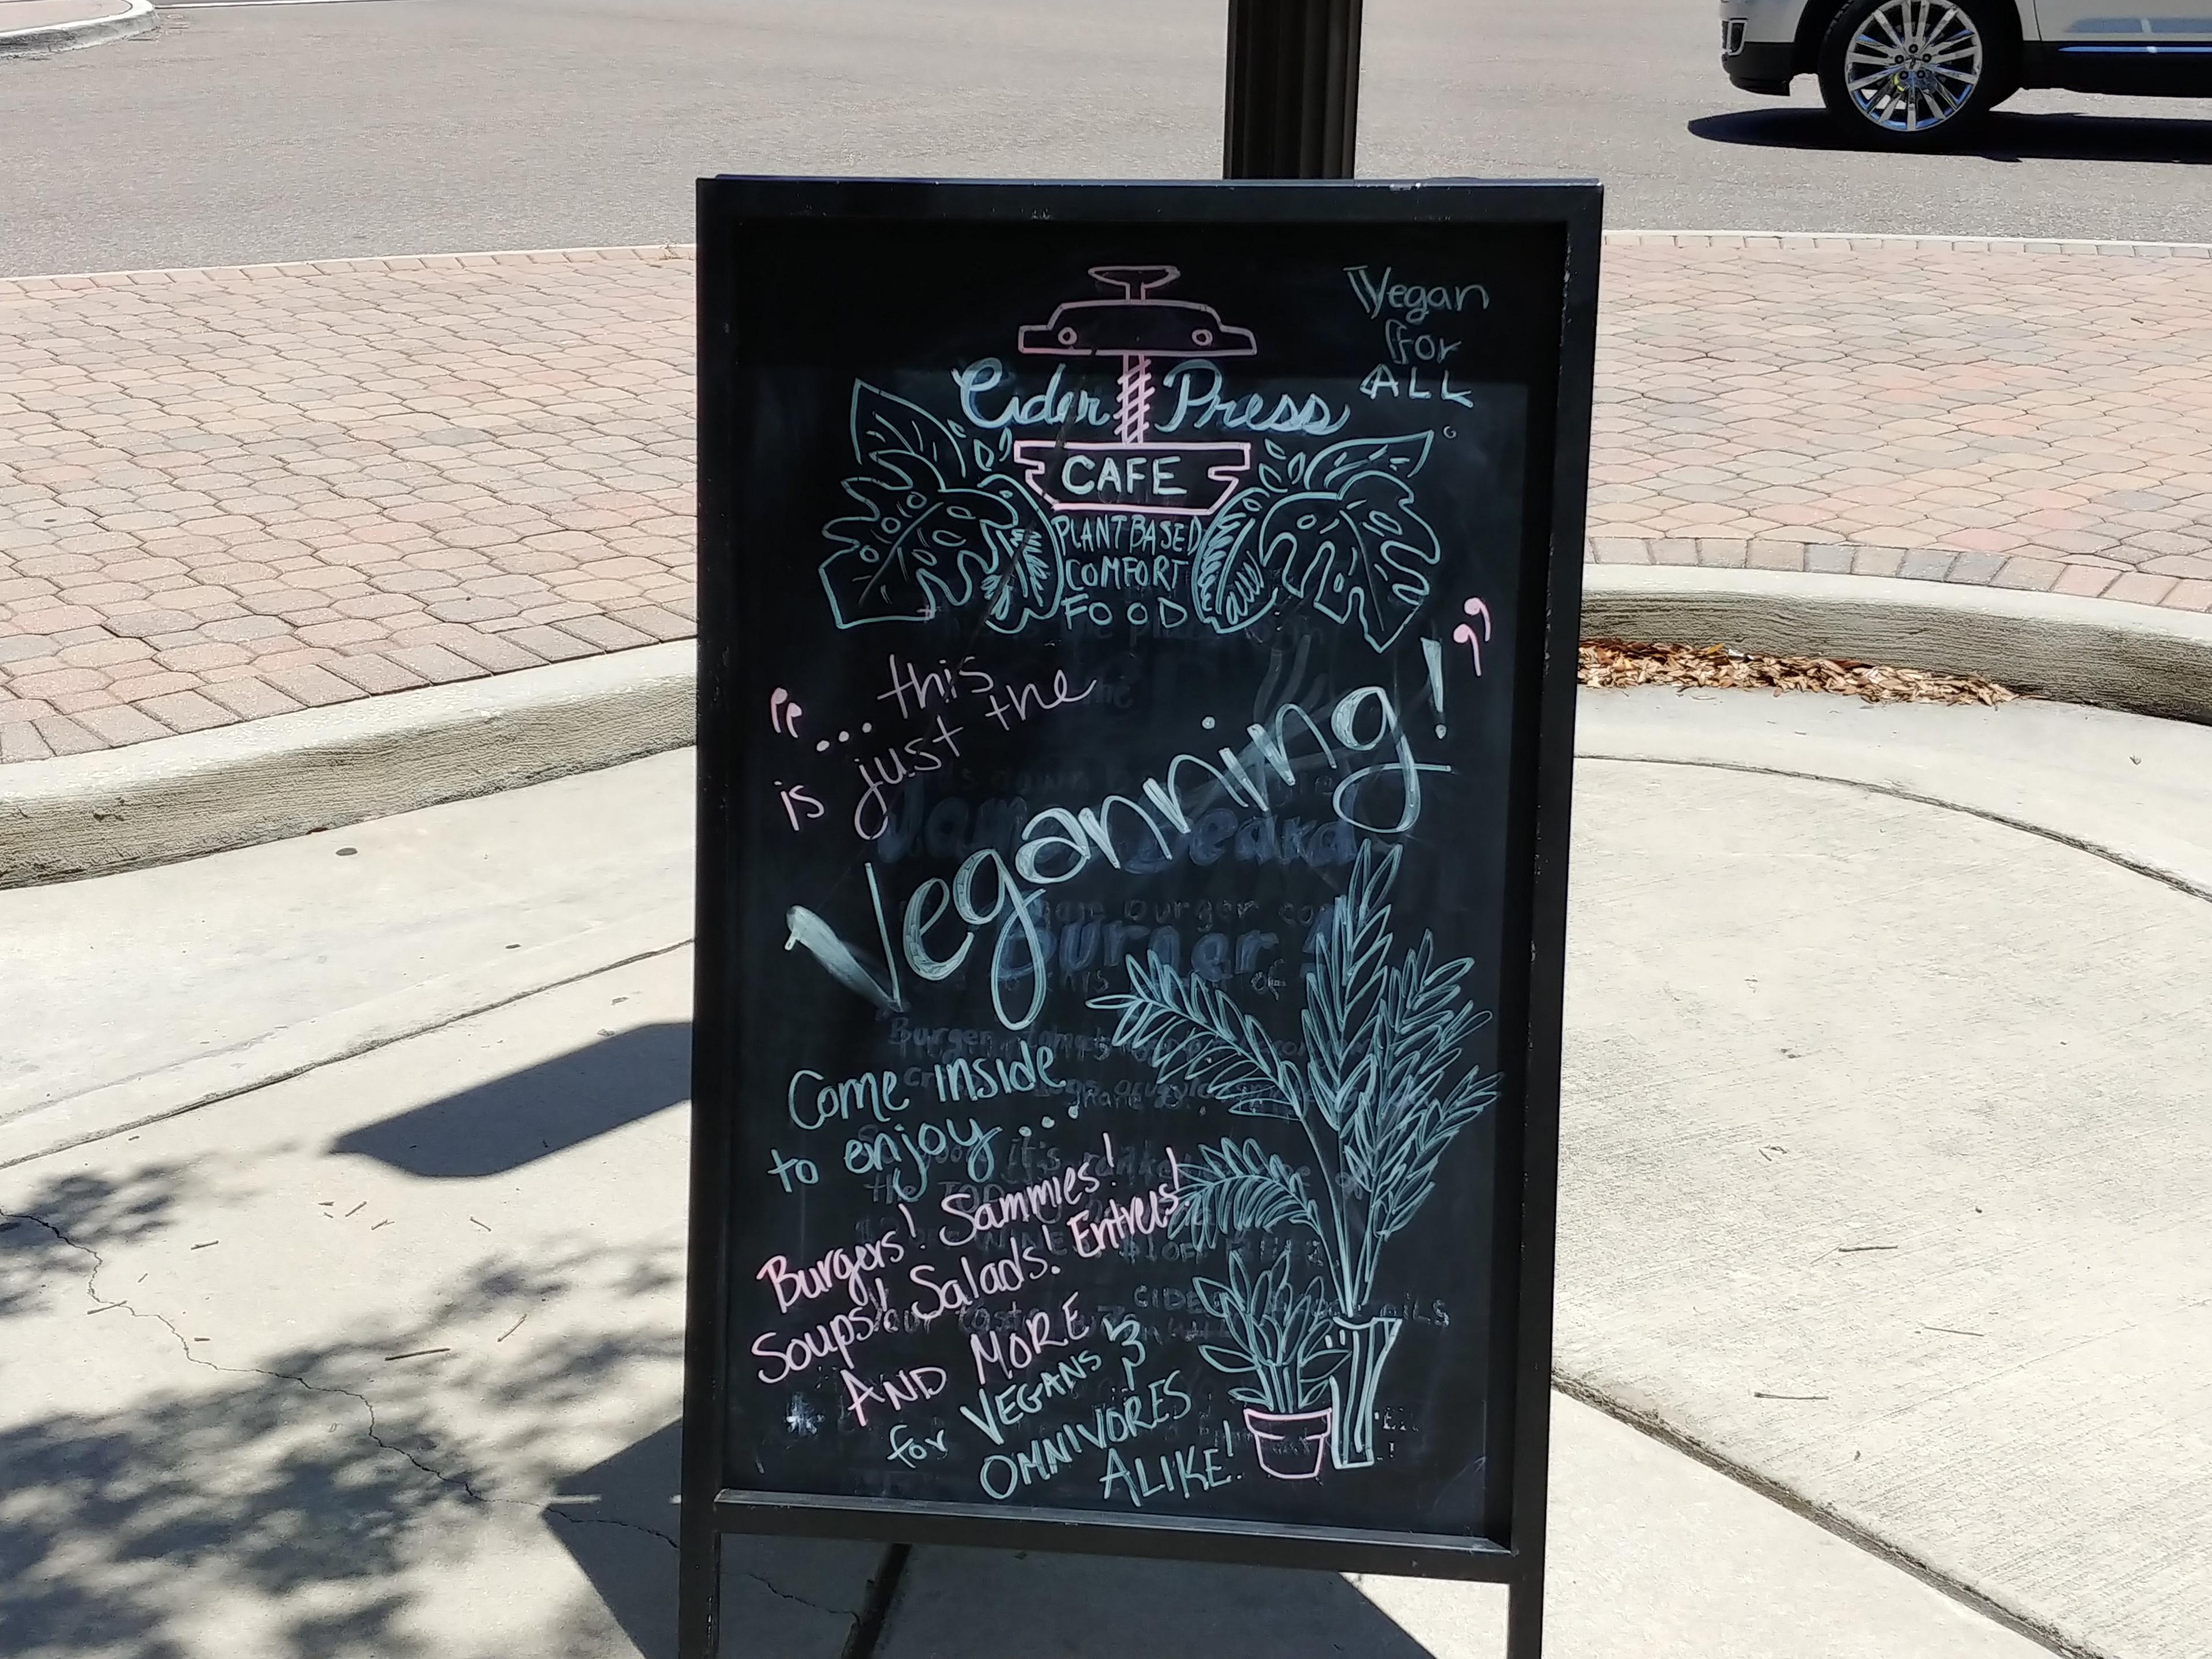 Vegan
For
ALL
Cider Press
CAFE
PLANT BASED
COMFORT
FOOD
"... this
is just the
Veganning!"
Come inside
to enjoy...
Burgers! Sammies!
Soups! Salads! Entrees!
AND MORE
for VEGANS &
OMNIVORES
ALIKE!